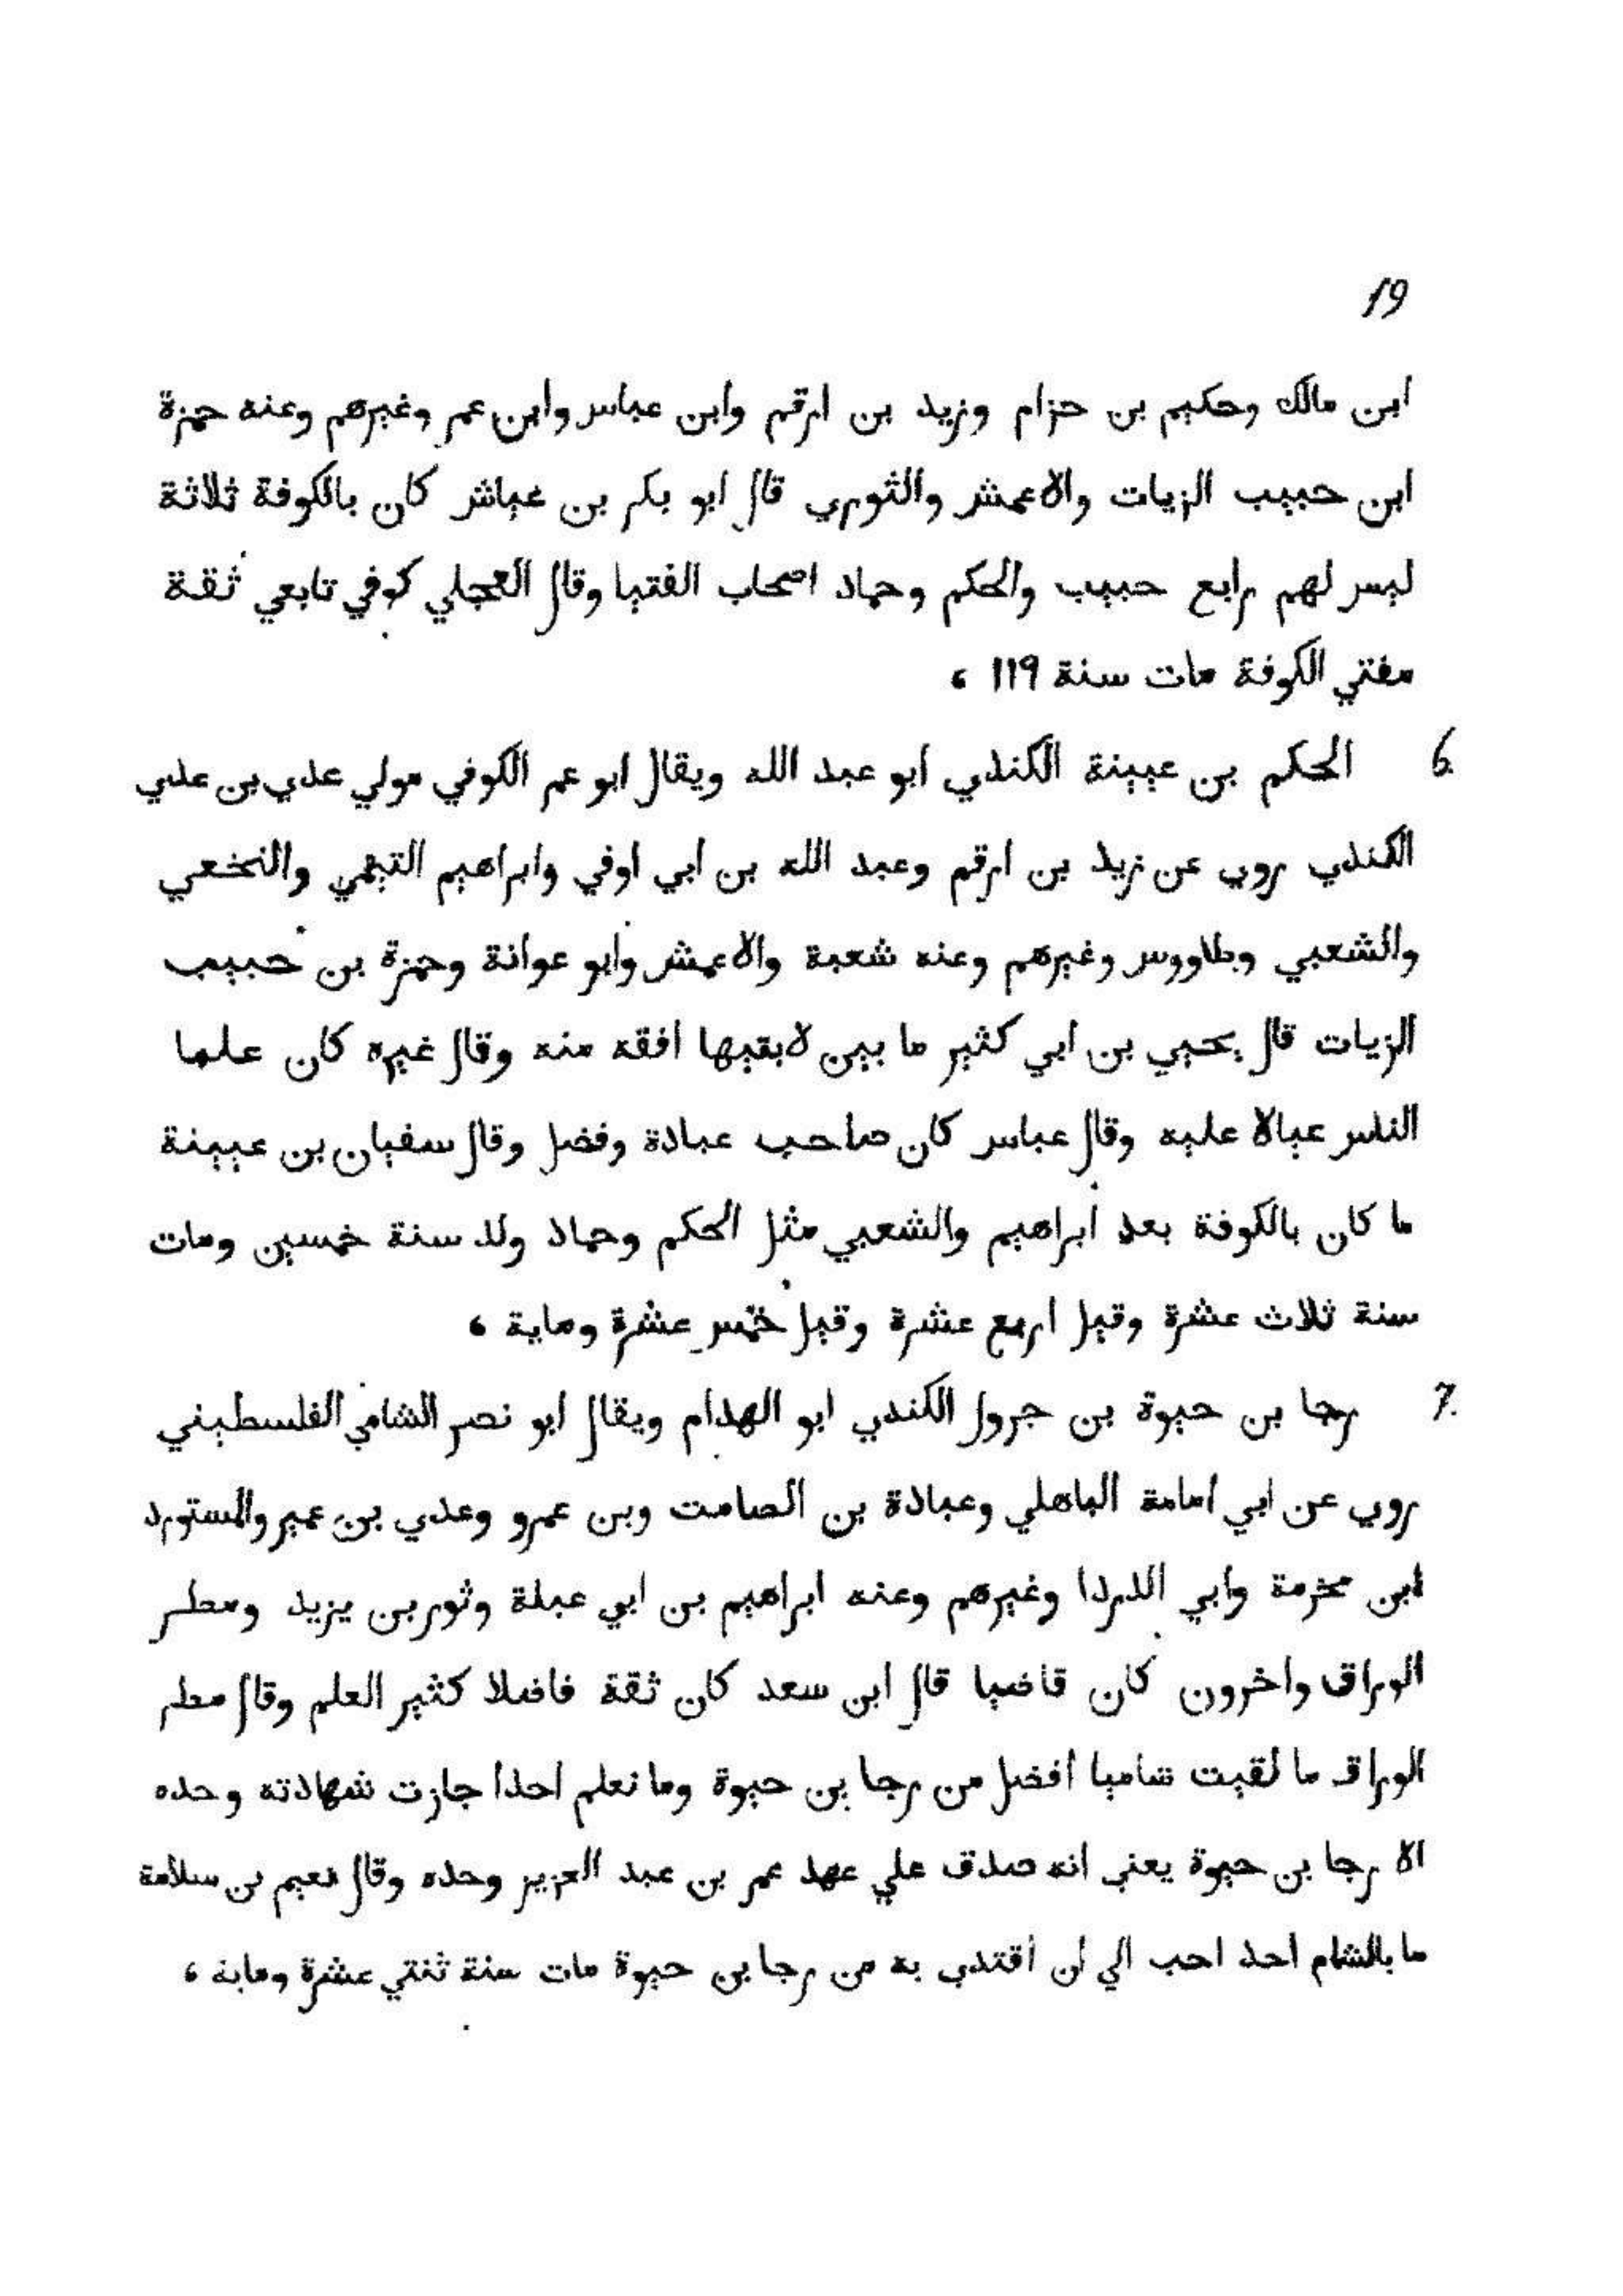 19
ابن مالك وحكيم بن حزام وزيد بن ارقم وابن عباس وابن عمر وغيرهم وعنه حمزة
ابن حبيب الزيات والاعمش والثوري قال ابو بكر بن عياش كان بالكوفة ثلاثة
ليس لهم رابع حبيب والحكم وحماد اصحاب الفتيا وقال العجلي كوفي تابعي ثقة
مفتي الكوفة مات سنة ١١٩ ،
6. الحكم بن عيينة الكندي ابو عبد الله ويقال ابو عمر الكوفي مولي عدي بن عدي
الكندي روي عن زيد بن ارقم وعبد الله بن ابي اوفي وابراهيم التيمي والنخعي
والشعبي وطاووس وغيرهم وعنه شعبة والاعمش وابو عوانة وحمزة بن حبيب
الزيات قال يحيي بن ابي كثير ما بين لابقيها افقه منه وقال غيره كان علما
الناس عيالا عليه وقال عباس كان صاحب عبادة وفضل وقال سفيان بن عيينة
ما كان بالكوفة بعد ابراهيم والشعبي مثل الحكم وحماد ولد سنة خمسين ومات
سنة ثلاث عشرة وقيل اربع عشرة وقيل خمس عشرة وماية ،
7. رجا بن حيوة بن جرول الكندي ابو الهدام ويقال ابو نصر الشامي الفلسطيني
روي عن ابي امامة الباهلي وعبادة بن الصامت وبن عمرو وعدي بن عمير والمستورد
ابن مخرمة وابي الدردا وغيرهم وعنه ابراهيم بن ابي عبلة وثور بن يزيد ومطر
الوراق واخرون كان قاضيا قال ابن سعد كان ثقة فاضلا كثير العلم وقال مطر
الوراق ما لقيت شاميا افضل من رجا بن حيوة وما نعلم احدا جازت شهادته وحده
الا رجا بن حيوة يعني انه صدق علي عهد عمر بن عبد العزيز وحده وقال نعيم بن سلامة
ما بالشام احد احب الي ان اقتدي به من رجا بن حيوة مات سنة ثنتي عشرة وماية ،